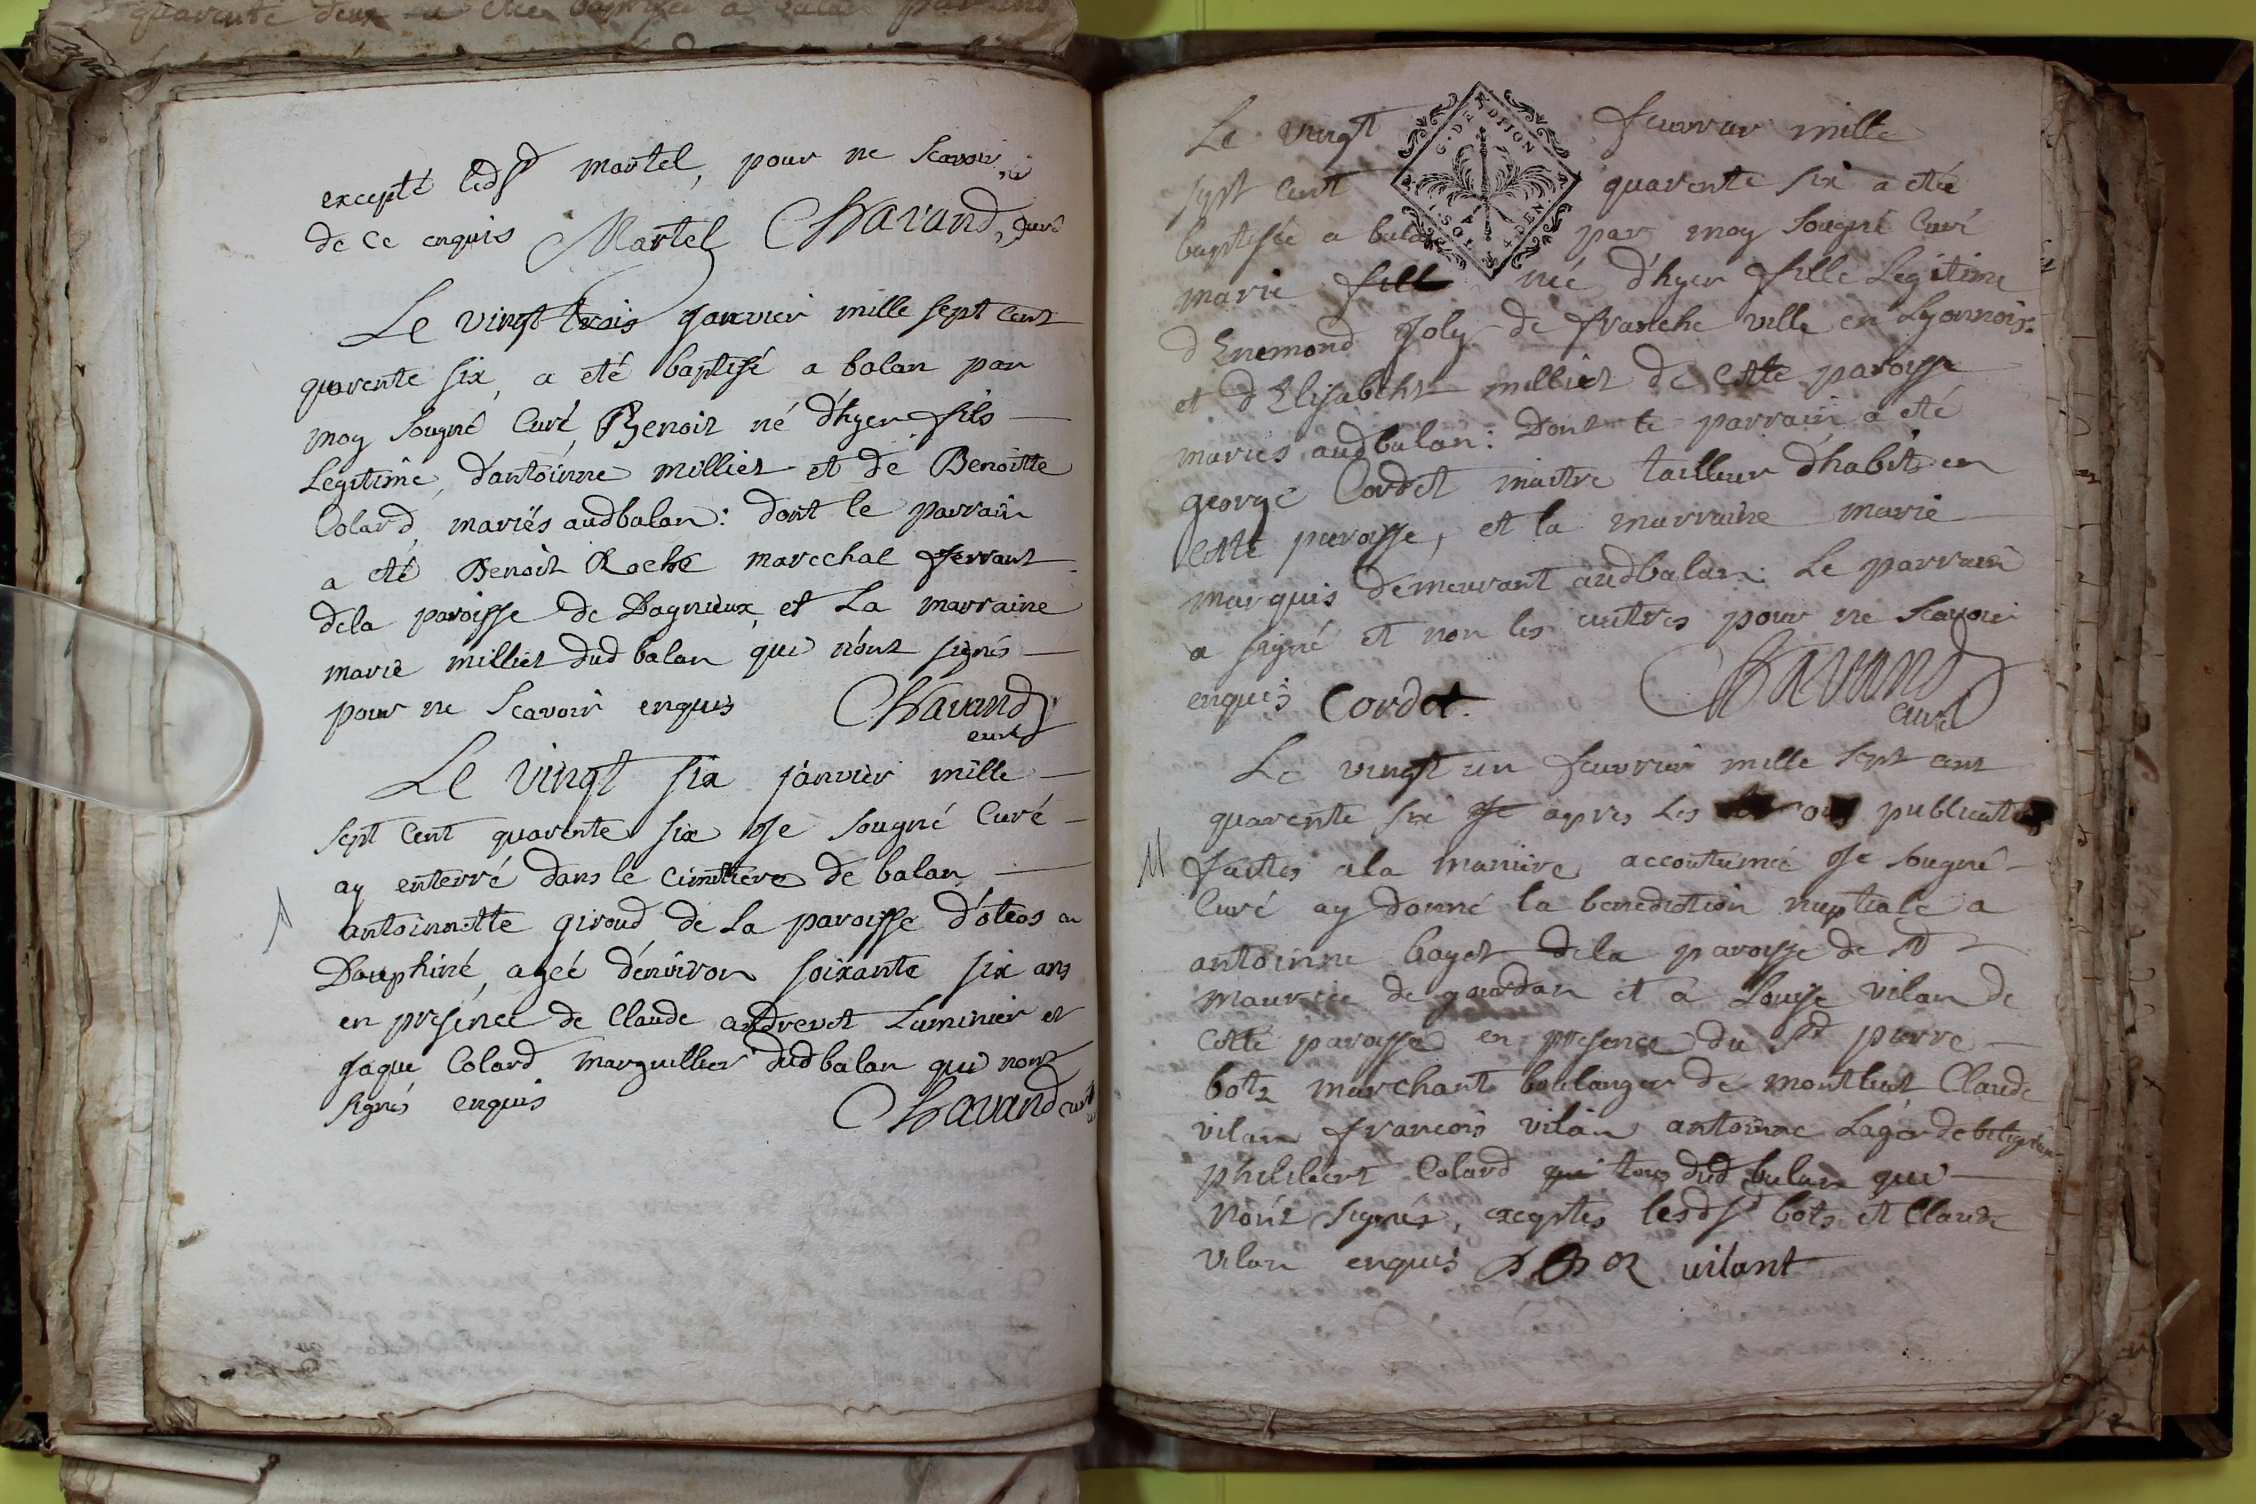 excepté leds.r martel, pour ne scavoir
de ce enquis Martel Chavand, curé
Le vingt trois janvier mille sept cent
quarente six, a eté baptisé a balan par
moy sougné Curé, Benoit né d'hyer fils
Legitime, d'antoinne milliet et de Benoitte
Colard, mariés audbalan: dont le parrain
a eté Benoit Roche marechal ferrant
dela paroisse de Dagnieux, et La marraine
marie milliet dudbalan qui n'ont signés
pour ne scavoir enquis Chavand
curé
Le vingt six janvier mille
sept cent quarente six Je sougné Curé
ay enterré dans le cimetiere de balan
antoinnette giroud de La paroisse d'oteos en
Dauphiné, ageé d'environ soixante six ans
en presence de Claude andrevet Luminier et
jaque Colard marguillier dudbalan qui n'ont
signés enquis Chavand curé
Le vingt feuvrier mille
sept cent quarente six a eteé
baptiseé a balan par moy sougné Curé
marie fille neé d'hyer fille Legitime
d'Enemond Joly de franche ville en Lyonnois
et d'Elisabeht milliet de cette paroisse
mariés audbalan: Dont le parrain a eté
george Cordet maitre tailleur d'habits en
cette paroisse, et la marraine marie
marquis demeurant audbalan: Le parrain
a signé et non les autres pour ne scavoir
enquis Cordet Chavand
curé
Le vingt un feuvrier mille sept cent
quarente six Je apres Les publications
faites ala maniere accoutumeé Je sougné
Curé ay donné la benediction nuptiale a
antoinne bayet dela paroisse de St
maurice de gourdan et a Louise vilan de
cette paroisse en presence du Sr pierre
botz marchant boulanger de montluel, Claude
vilan françois vilan antoinne Lager de beligneux
philibert Colard qui tous dudbalan qui
n'ont signés, exceptés lesds.r bots et Claude
vilan enquis vilant